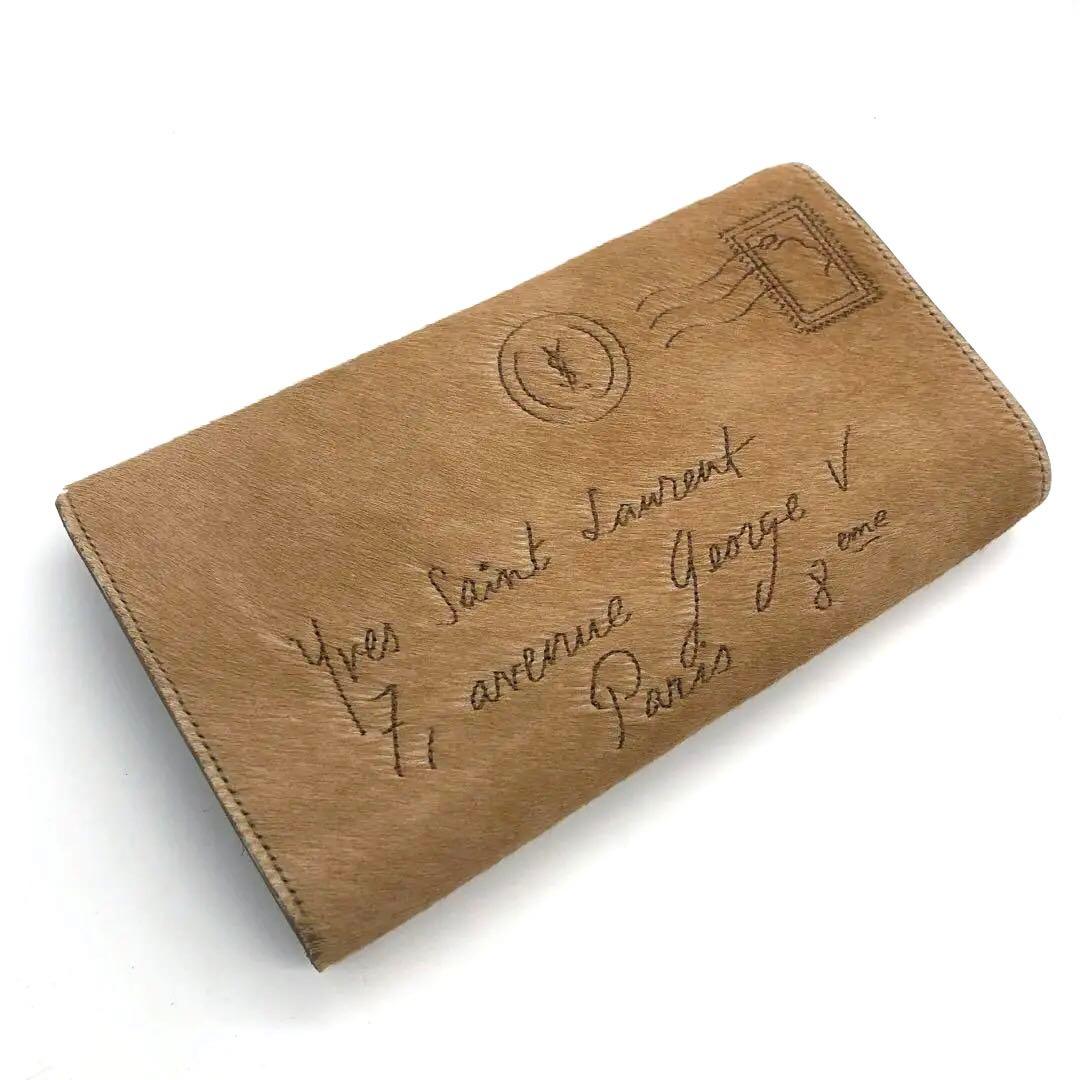 YSL
Yves Saint Laurent
7, avenue George V
Paris 8 eme